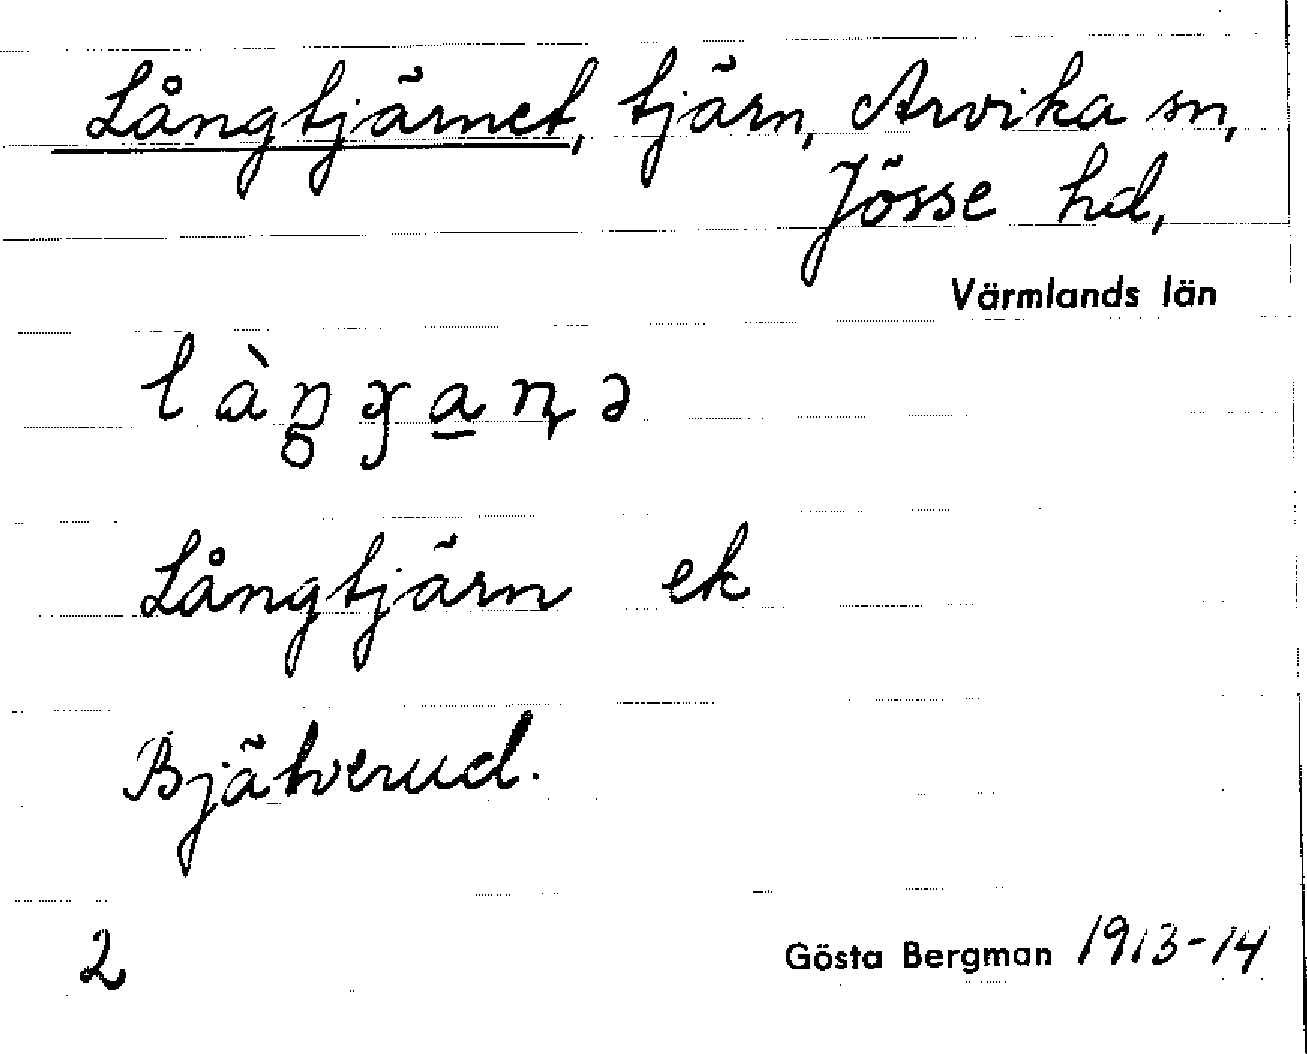 Långtjärnet, tjärn, Arvika sn,
Jösse hd,
Värmlands län
Långtjärn ek
Bjätverud.
2
Gösta Bergman 1913-14